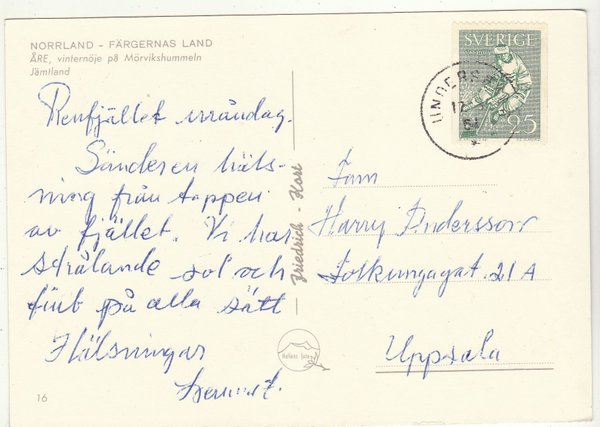 NORRLAND - FÄRGERNAS LAND
ÅRE, vinternöje på Mörvikshummeln
Jämtland
Renfjället måndag.
Sänderen häls-
ning från toppen
av fjället. Vi har
strålande sol och
fint på alla sätt
Hälsningar
16
Friedrich - Kort
SVERIGE
25
UNDERSÅKER
17
Fam
Harry Andersson
Folkungagat. 21 A
Uppsala